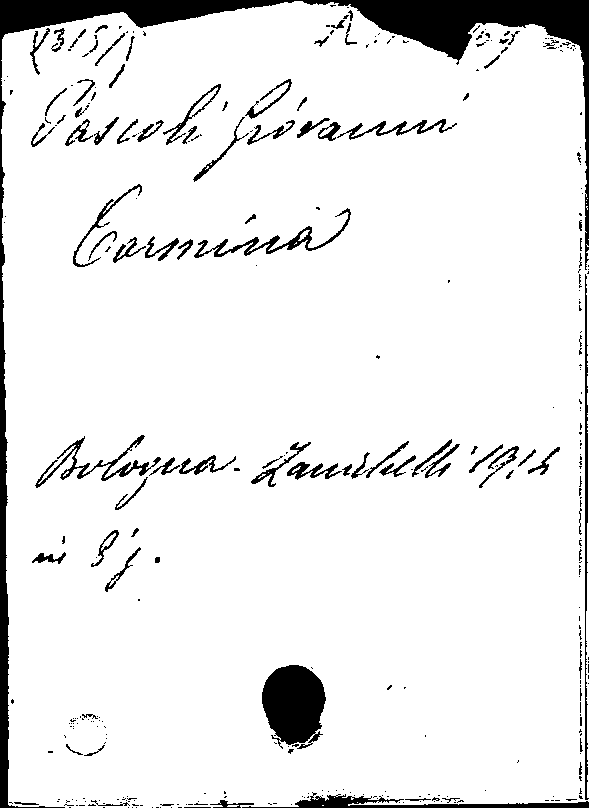 (315)
Pascoli Giovanni
Carmina
Bologna - Zanichelli 1914
in 8 g.